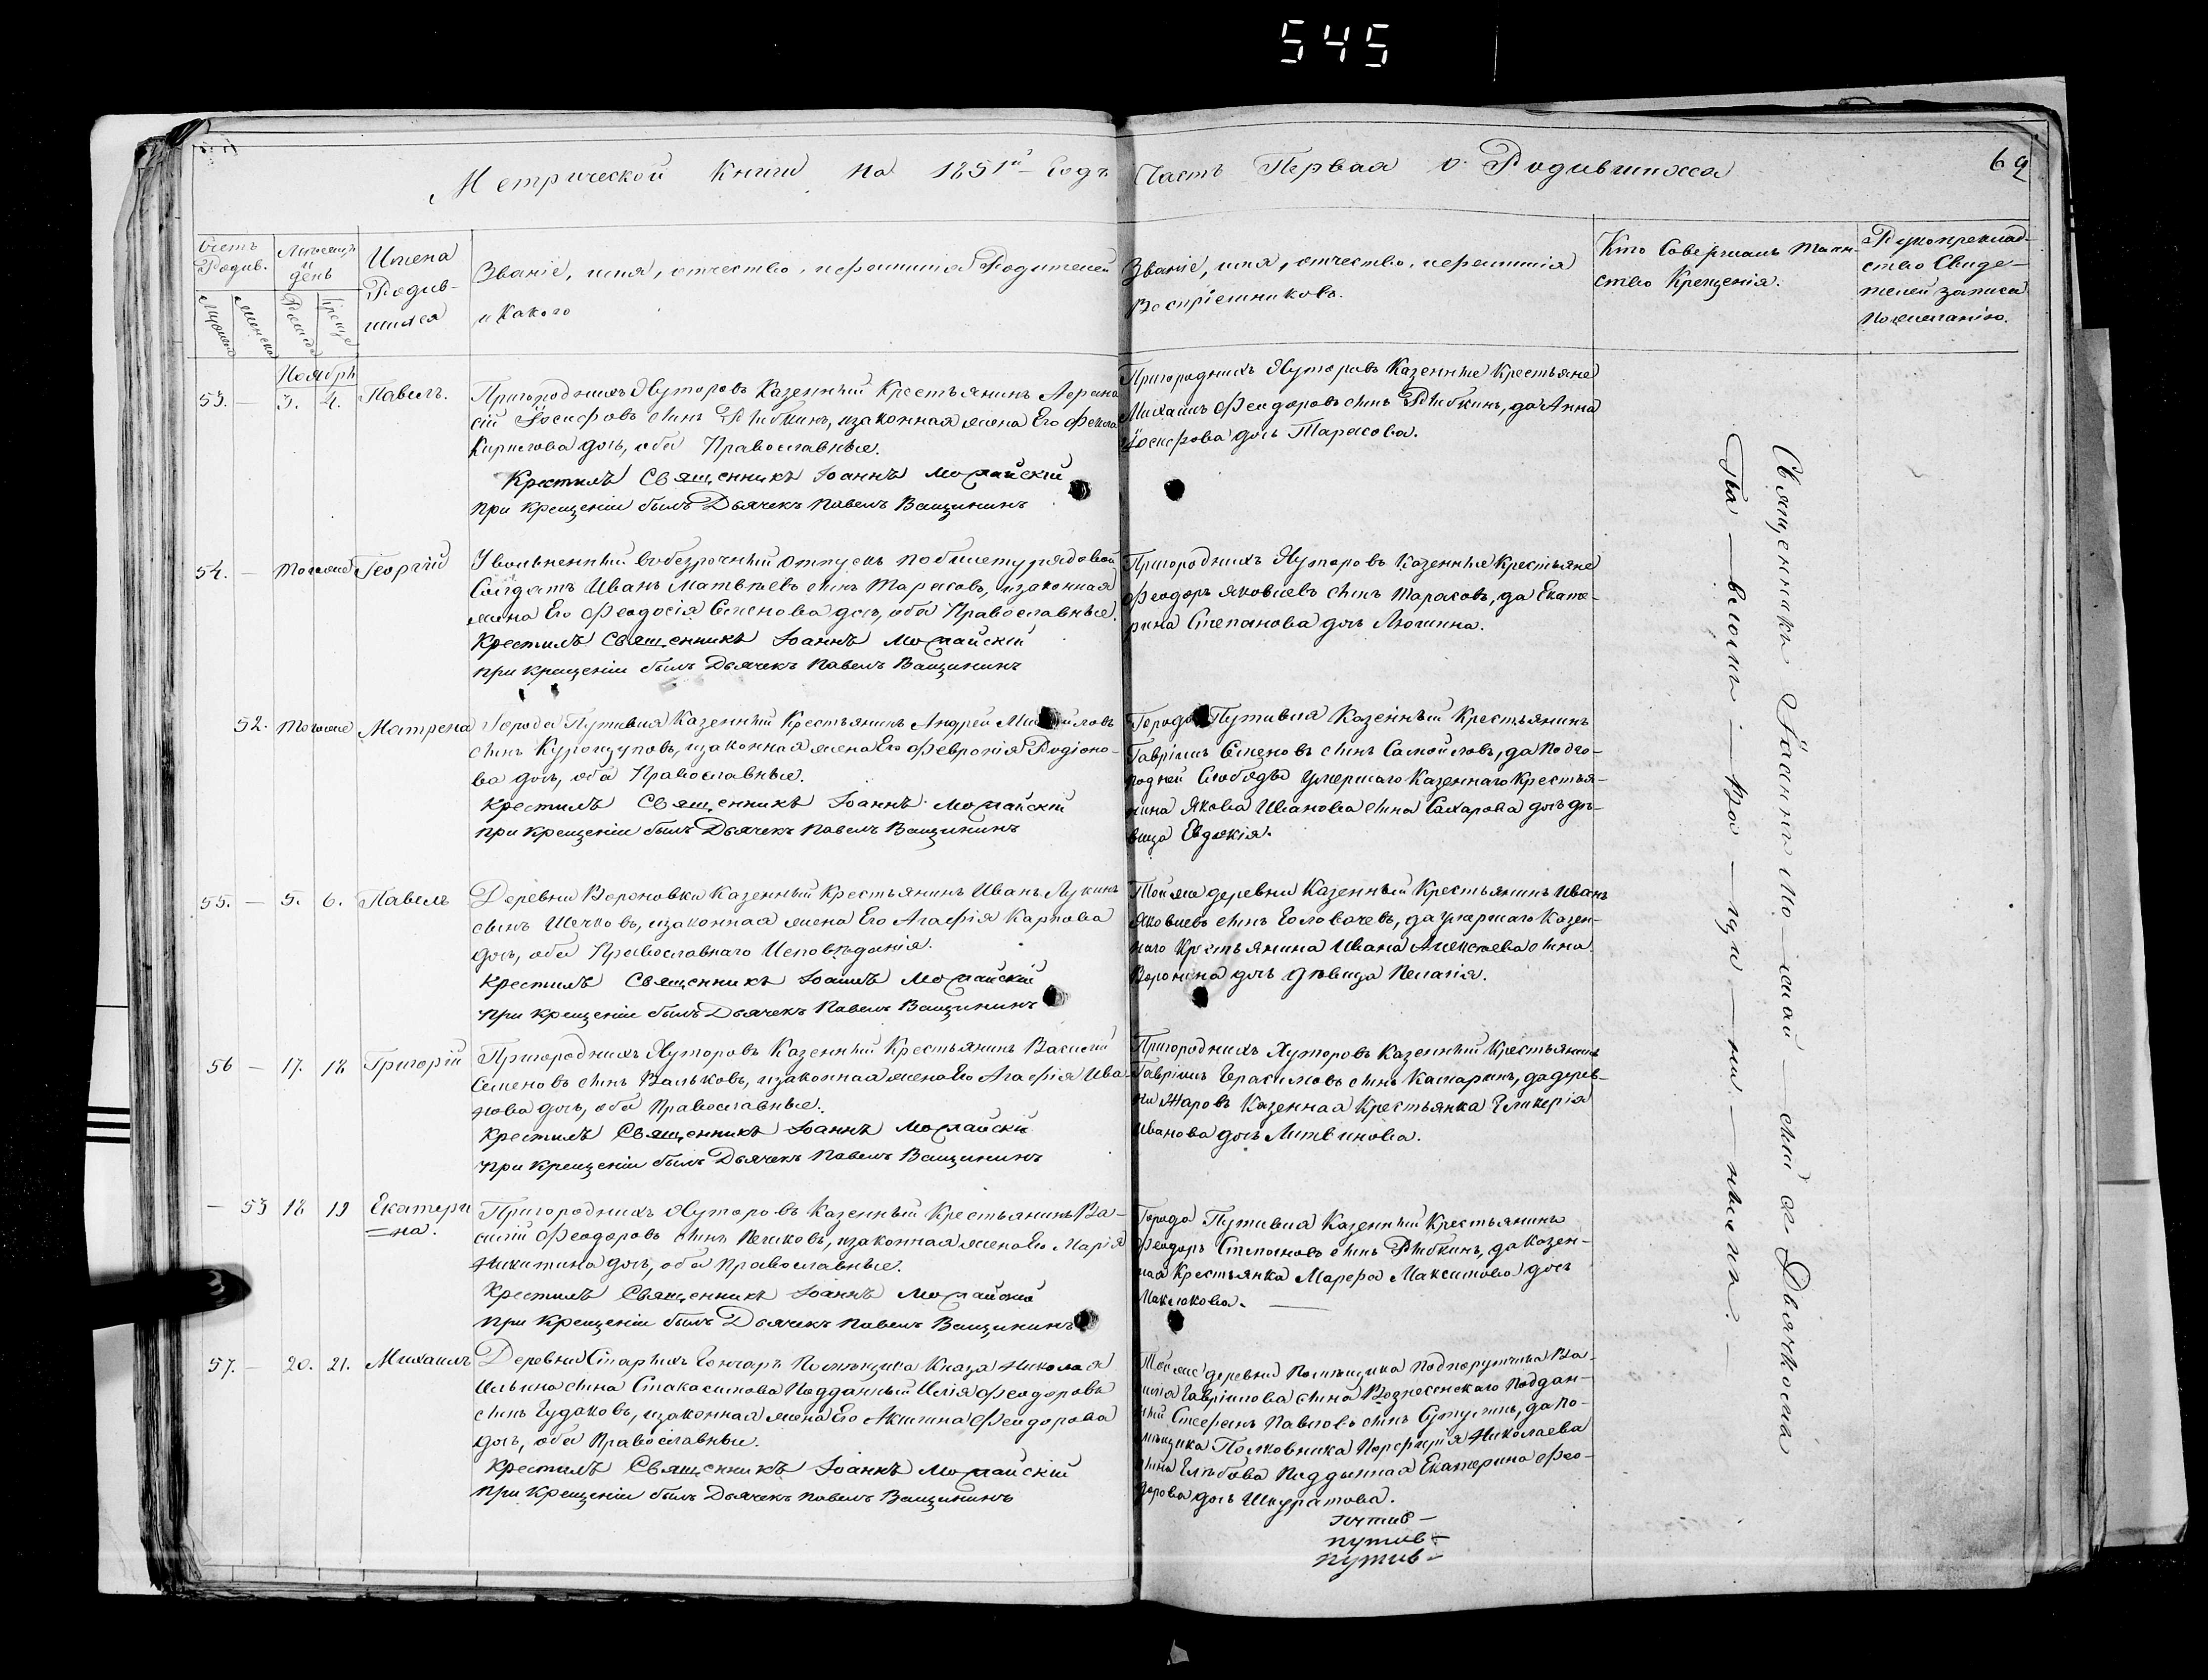 545
Метрической Книги на 1851й Годъ Часть Первая о Родившихся
69
Счетъ Родив.
Мужеска
Женска
Мѣсяцъ и день
Рожд.
Креще
Имена Родив-
шихся
Званіе, имя, отчество, и фамилія Родителей
и Какого
Званіе, имя, отчество, и фамилія
Воспріемниковъ.
Кто Совершалъ Таин-
ство Крещенія.
Рукоприклад-
ство Свиде-
телей записи
По желанію.
Ноябрь
53. — 3. 4. Павелъ.
Пригородныхъ Хуторовъ Казенный Крестьянинъ
сій Іосифовъ сынъ Рыбкинъ, и законная жена Его Фекла
Кирилова дочь, оба Православные.
Крестилъ Священникъ Іоаннъ Можайскій
при Крещеніи былъ Дьячекъ Павелъ Ващининъ
Пригородныхъ Хуторовъ Казенные Крестьяне
Михаилъ Феодоровъ сынъ Рыбкинъ, да Анна
Іосифова дочь Тарасова.
54. — Тогоже Георгій
Уволненный въ безрочный отпускъ по билету рядовой
Солдатъ Иванъ Матвѣевъ сынъ Тарасовъ, и законная
жена Его Феодосія Семенова дочь, оба Православные.
Крестилъ Священникъ Іоаннъ Можайскій
при Крещеніи былъ Дьячекъ Павелъ Ващининъ
Пригородныхъ Хуторовъ Казенные Крестьяне
Феодоръ Яковлевъ сынъ Тарасовъ, да Екате-
рина Степанова дочь
52. Тогоже Матрена
Города Путивля Казенный Крестьянинъ Андрей Михайловъ
сынъ Курощуповъ, и законная жена Его Февронія Родіоно-
ва дочь, оба Православные.
Крестилъ Священникъ Іоаннъ Можайскій
при Крещеніи былъ Дьячекъ Павелъ Ващининъ
Города Путивля Казенный Крестьянинъ
Гавріилъ Семеновъ сынъ Самойловъ, да Подго-
родней Слободы умершаго Казеннаго Крестья-
нина Якова Иванова сына Сахарова дочь дѣ-
вица Евдокія.
55. — 5. 6. Павелъ
Деревни Вороновки Казенный Крестьянинъ Иванъ Лукинъ
сынъ Шечковъ, и законная жена Его Агафія Карпова
дочь, оба Православнаго Исповѣданія.
Крестилъ Священникъ Іоаннъ Можайскій
при крещеніи былъ Дьячекъ Павелъ Ващининъ
Той же деревни Казенный Крестьянинъ Иванъ
Яковлевъ сынъ Головачевъ, да умершаго Казен-
наго Крестьянина Ивана Алексѣева сына
Воронина дочь дѣвица Пелагія.
56 — 17. 18 Григорій
Пригородныхъ Хуторовъ Казенный Крестьянинъ Василій
Семеновъ сынъ Вальковъ, и законная жена Его Агафія Ива-
нова дочь, оба Православные.
Крестилъ Священникъ Іоаннъ Можайскій
при Крещеніи былъ Дьячекъ Павелъ Ващининъ
Пригородныхъ Хуторовъ Казенный Крестьянинъ
Гавріилъ Герасимовъ сынъ Катаринъ, да дерев-
ни Яровъ Казенная Крестьянка Гликерія
Иванова дочь Литвинова.
— 53 18 19 Екатери
=на.
Пригородныхъ Хуторовъ Казенный Крестьянинъ Ва-
силій Феодоровъ сынъ и законная жена Его Марія
Никитина дочь, оба Православные.
Крестилъ Священникъ Іоаннъ Можайскій
при Крещеніи былъ Дьячекъ Павелъ Ващининъ
Города Путивля Казенный Крестьянинъ
Феодоръ Степановъ сынъ Рыбкинъ, да Казен-
ная Крестьянка Марфа Максимова дочь
Маклокова. —
57. — 20. 21. Михаилъ
Деревни Старыхъ Гончаръ Помѣщика Князя Николая
Ильина сына Подданный Илія Феодоровъ
сынъ Гудаковъ, и законная жена Его Акилина Феодорова
дочь, оба Православные.
Крестилъ Священникъ Іоаннъ Можайскій
при Крещеніи былъ Дьячекъ Павелъ Ващининъ
Той же деревни Помѣщика Подпоручика Ва-
силія Гавріилова сына Вознесенскаго Поддан-
ный Стефанъ Павловъ сынъ да По-
мѣщика Полковника Порфирія Николаева
сына Глѣбова Подданная Екатерина Фео-
дорова дочь Шкуратова.
путив-
путив-
Священникъ Іоаннъ Мо — жай — скій
Дьячекъ Па — велъ Ва — щи — нинъ